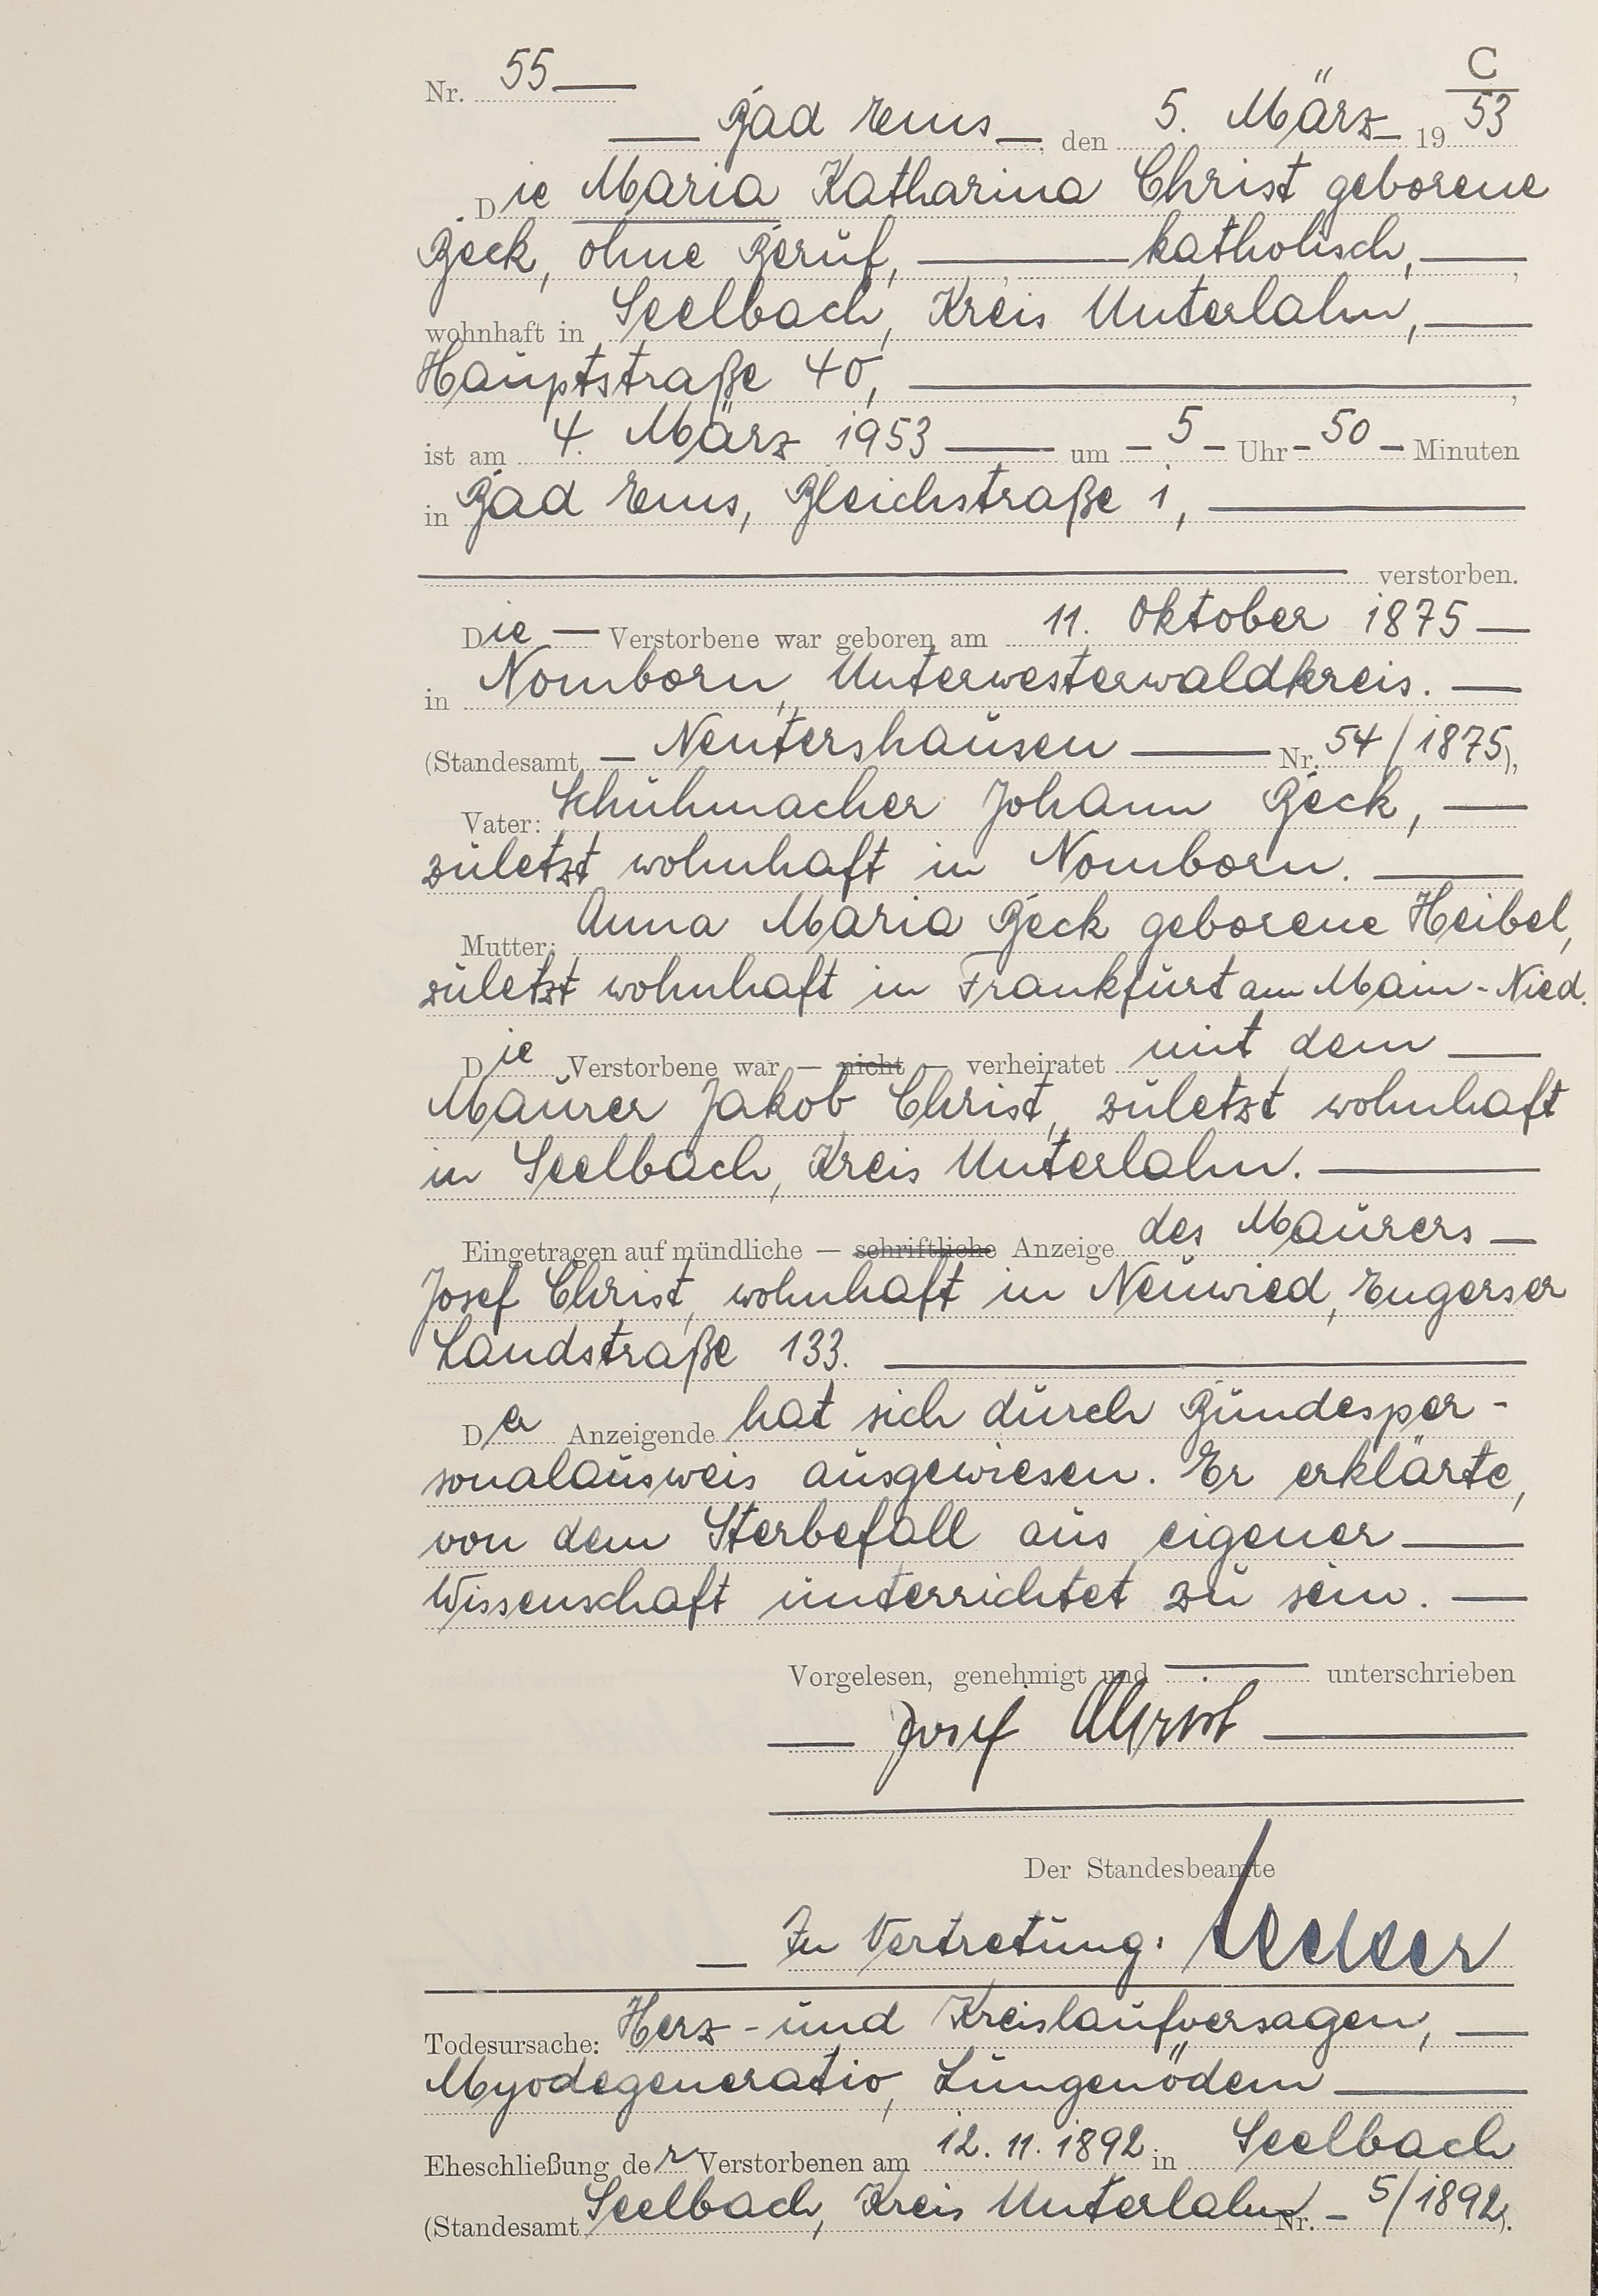 Nr. 55 C
Bad Ems, den 5. März 19 53
Die Maria Katharina Christ geborene
Beck, ohne Beruf, katholisch,
wohnhaft in Seelbach, Kreis Unterlahn,
Hauptstraße 40,
ist am 4. März 1953 um 5 Uhr 50 Minuten
in Bad Ems, Bleichstraße 1,
verstorben.
Die Verstorbene war geboren am 11. Oktober 1875
in Nomborn, Unterwesterwaldkreis.
(Standesamt Nentershausen Nr. 54/1875),
Vater: Schuhmacher Johann Beck,
zuletzt wohnhaft in Nomborn.
Mutter: Anna Maria Beck geborene Heibel,
zuletzt wohnhaft in Frankfurt am Main-Nied.
Die Verstorbene war — nicht — verheiratet mit dem
Maurer Jakob Christ, zuletzt wohnhaft
in Seelbach, Kreis Unterlahn.
Eingetragen auf mündliche — schriftliche Anzeige des Maurers
Josef Christ, wohnhaft in Neuwied, Engerser
Landstraße 133.
Der Anzeigende hat sich durch Bundesper-
sonalausweis ausgewiesen. Er erklärte,
von dem Sterbefall aus eigener
Wissenschaft unterrichtet zu sein.
Vorgelesen, genehmigt und unterschrieben
Josef Christ
Der Standesbeamte
In Vertretung:
Todesursache: Herz- und Kreislaufversagen,
Myodegeneratio, Lungenödem
Eheschließung der Verstorbenen am 12. 11. 1892 in Seelbach
(Standesamt Seelbach, Kreis Unterlahn Nr. 5/1892).